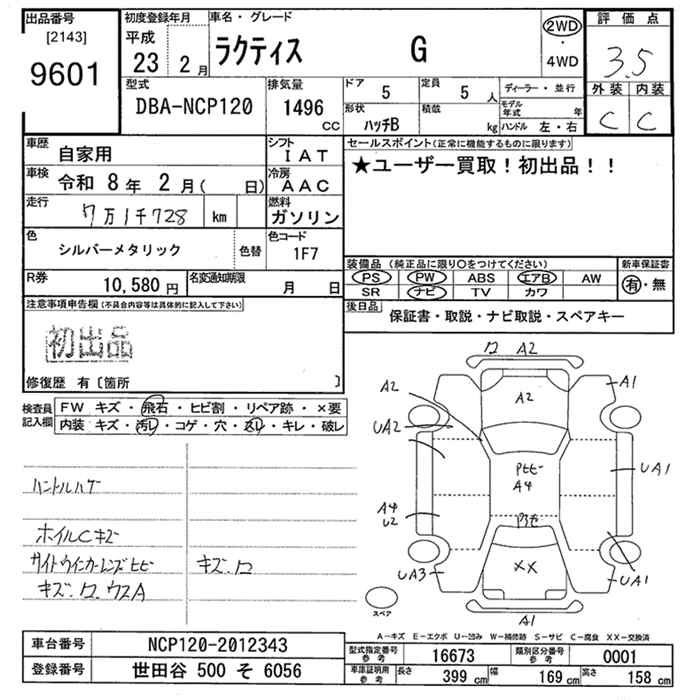 出品番号
[2143]
9601
初度登録年月
平成
23年 2月
車名・グレード
ラクティス G
2WD・4WD
評価点
3.5
外装 内装
C C
型式
DBA-NCP120
排気量
1496 CC
ドア 5
定員 5 人
形状 ハッチB
積載 kg
ディーラー・並行
モデル年式 年
ハンドル 左・右
車歴 自家用
シフト IAT
車検 令和 8年 2月( 日)
冷房 AAC
走行 7万1千728 km
燃料 ガソリン
色 シルバーメタリック 色替
色コード 1F7
R券 10,580 円
名変通知期限 月 日
セールスポイント(正常に機能するものに限ります)
★ユーザー買取!初出品!!
装備品 (純正品に限り○をつけてください)
PS PW ABS エアB AW
SR ナビ TV カワ
新車保証書
有・無
後日品
保証書・取説・ナビ取説・スペアキー
注意事項申告欄(不具合内容等は具体的に記入して下さい)
初出品
修復歴 有〔箇所 〕
検査員記入欄
FW キズ・飛石・ヒビ割・リペア跡・×要
内装 キズ・汚レ・コゲ・穴・返し・キレ・破レ
ハンドルハゲ
ホイルCキズ
サイドウインカーレンズヒビ
キズ.ワ.ウスA
キズ.ワ
ワ A2
A2
A2
A1
UA2
UA1
Pヒビ
A4
A4
U2
UA3
XX
UA1
A1
スペア
A-キズ E-エクボ U-凹み W-補修跡 S-サビ C-腐食 XX-交換済
車台番号 NCP120-2012343
登録番号 世田谷 500 そ 6056
型式指定番号参考 16673
類別区分番号参考 0001
車庫証明用参考 長さ 399 cm 幅 169 cm 高さ 158 cm